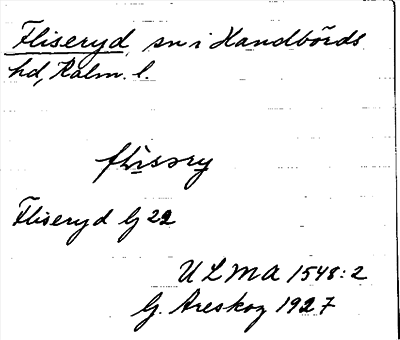 Fliseryd, sn i Handbörds
hd, Kalm. l.
flissry
Fliseryd Lj 22
ULMA 1548:2
G. Areskog 1927